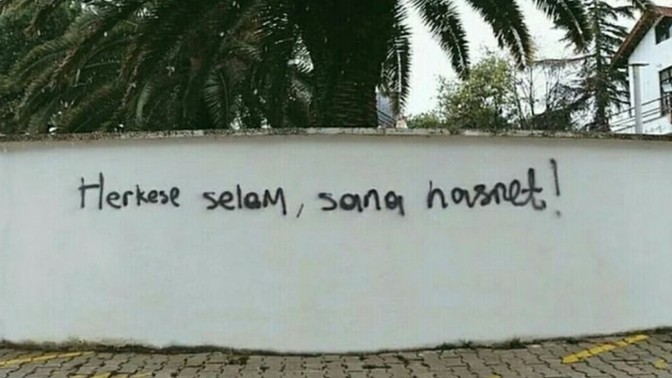 Herkese selam, sana hasret!